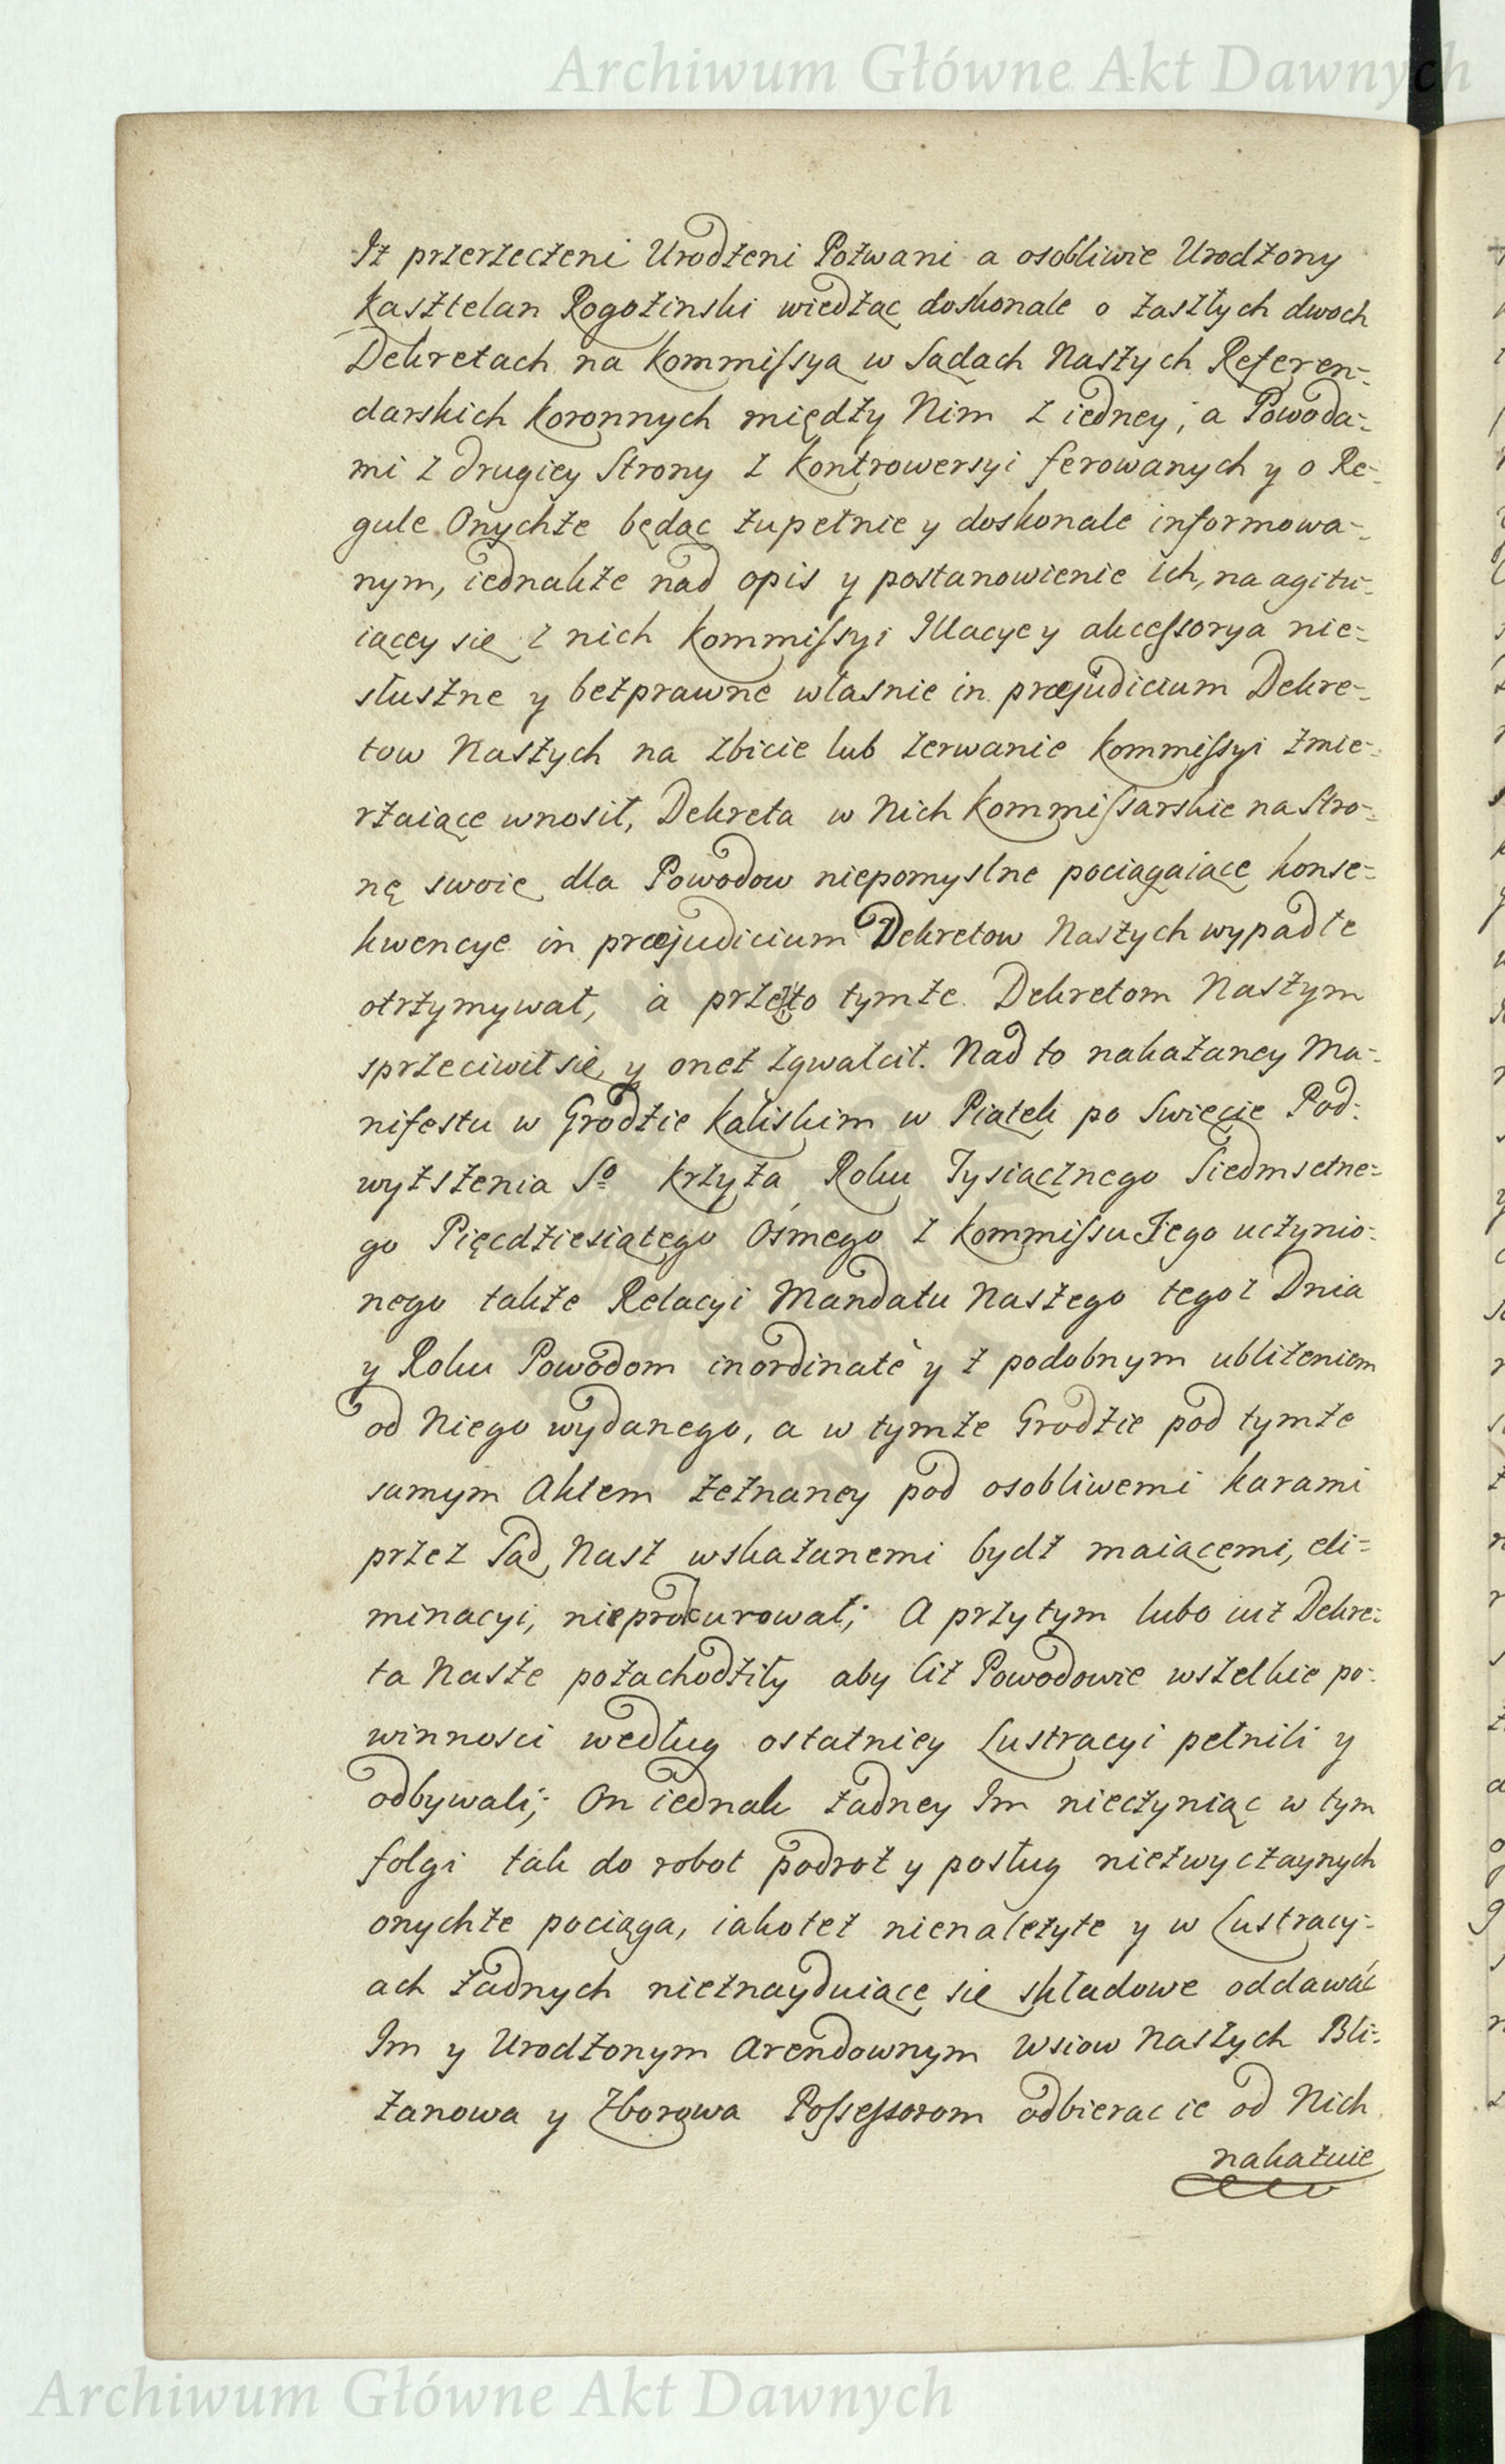 Archiwum Główne Akt Dawnych
Iż przerzeczeni Urodzeni Pozwani a osobliwie Urodzony
Kasztelan Rogozinski wiedząc doskonale o zaszłych dwoch
Dekretach na Kommissyą w Sądach Naszych Referen=
darskich Koronnych między Nim z iedney, a Powoda=
mi z drugiey Strony z Kontrowersyi ferowanych y o Re=
gule Onychże będąc zupełnie y doskonale informowa=
nym, iednakże nad opis y postanowienie ich, na agitu=
iącey się z nich Kommissyi Illacye y akcessorya nie=
słuszne y bezprawne własnie in præjudicium Dekre=
tow Naszych na zbicie lub zerwanie Kommissyi zmie=
rzaiące wnosił, Dekreta w Nich Kommissarskie na Stro=
nę swoię dla Powodow niepomyslne pociągaiące konse=
kwencye in præjudicium Dekretow Naszych wypadłe
otrzymywał, a przeto tymże Dekretom Naszym
sprzeciwił się y onez zgwałcił. Nad to nakazaney Ma=
nifestu w Grodzie Kaliskim w Piątek po Swięcie Pod=
wyższenia So Krzyża Roku Tysiącznego Siedmsetne=
go Pięcdziesiątego Osmego z Kommissu Jego uczynio=
nego także Relacyi Mandatu Naszego tegoż Dnia
y Roku Powodom inordinatè y z podobnym ubliżeniem
od Niego wydanego, a w tymże Grodzie pod tymże
samym Aktem zeznaney pod osobliwemi karami
przez Sąd Nasz wskazanemi bydź maiącemi, eli=
minacyi, nieprokurował; A przytym lubo iuż Dekre=
ta Nasze pozachodziły aby Ciż Powodowie wszelkie po=
winnosci według ostatniey Lustracyi pełnili y
odbywali; On iednak żadney Im nieczyniąc w tym
folgi tak do robot podroż y posług niezwyczaynych
onychże pociąga, iakoteż nienależyte y w Lustracy=
ach żadnych nieznayduiące się składowe oddawać
Im y Urodzonym Arendownym Wsiow Naszych Bli=
żanowa y Zborowa Possessorom odbierac ie od Nich
nakazuie
Archiwum Główne Akt Dawnych